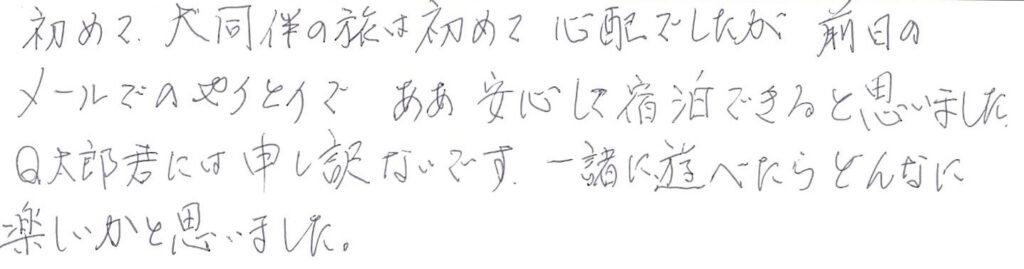 初めて、犬同伴の旅は初めて 心配でしたが 前日の
メールでのやりとりで ああ 安心して宿泊できると思いました。
Q太郎君には申し訳ないです。一諸に遊べたらどんなに
楽しいかと思いました。